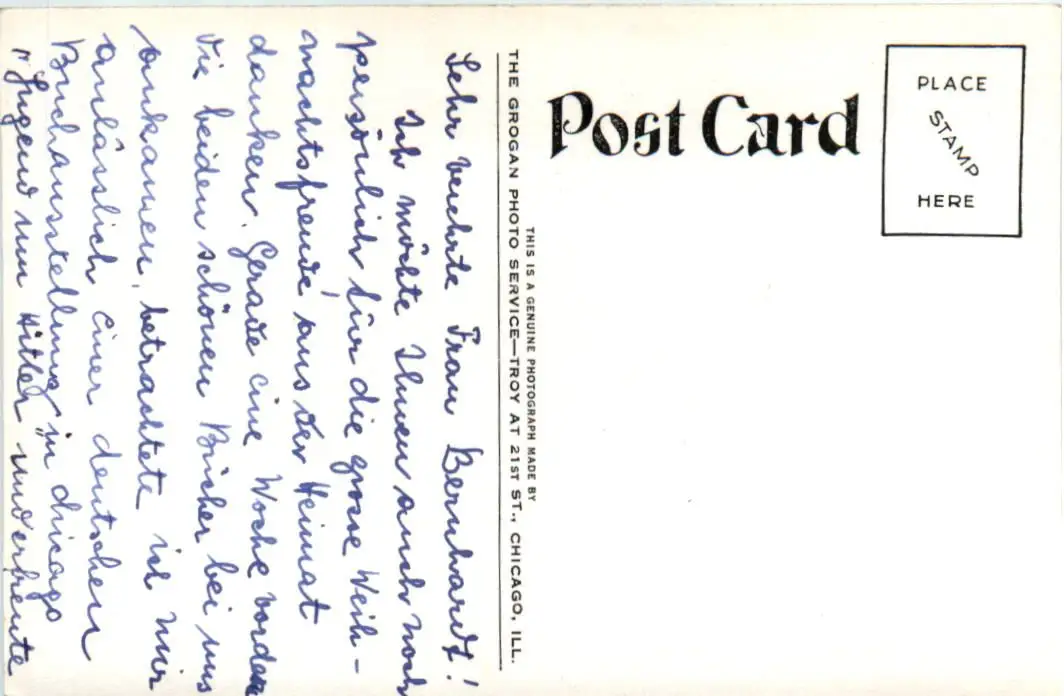 Sehr verehrte Frau Bernhardt!
Ich möchte Ihnen auch noch
persönlich für die grosse Weih-
nachtsfreude aus der Heimat
danken. Gerade eine Woche vordem
die beiden schönen Bücher bei uns
ankamen, betrachtete ich mir
anlässlich einer deutschen
Buchausstellung in Chicago
"Jugend um Hitler" und erfreute
THE GROGAN PHOTO SERVICE—TROY AT 21ST ST., CHICAGO, ILL.
THIS IS A GENUINE PHOTOGRAPH MADE BY
Post Card
PLACE
STAMP
HERE